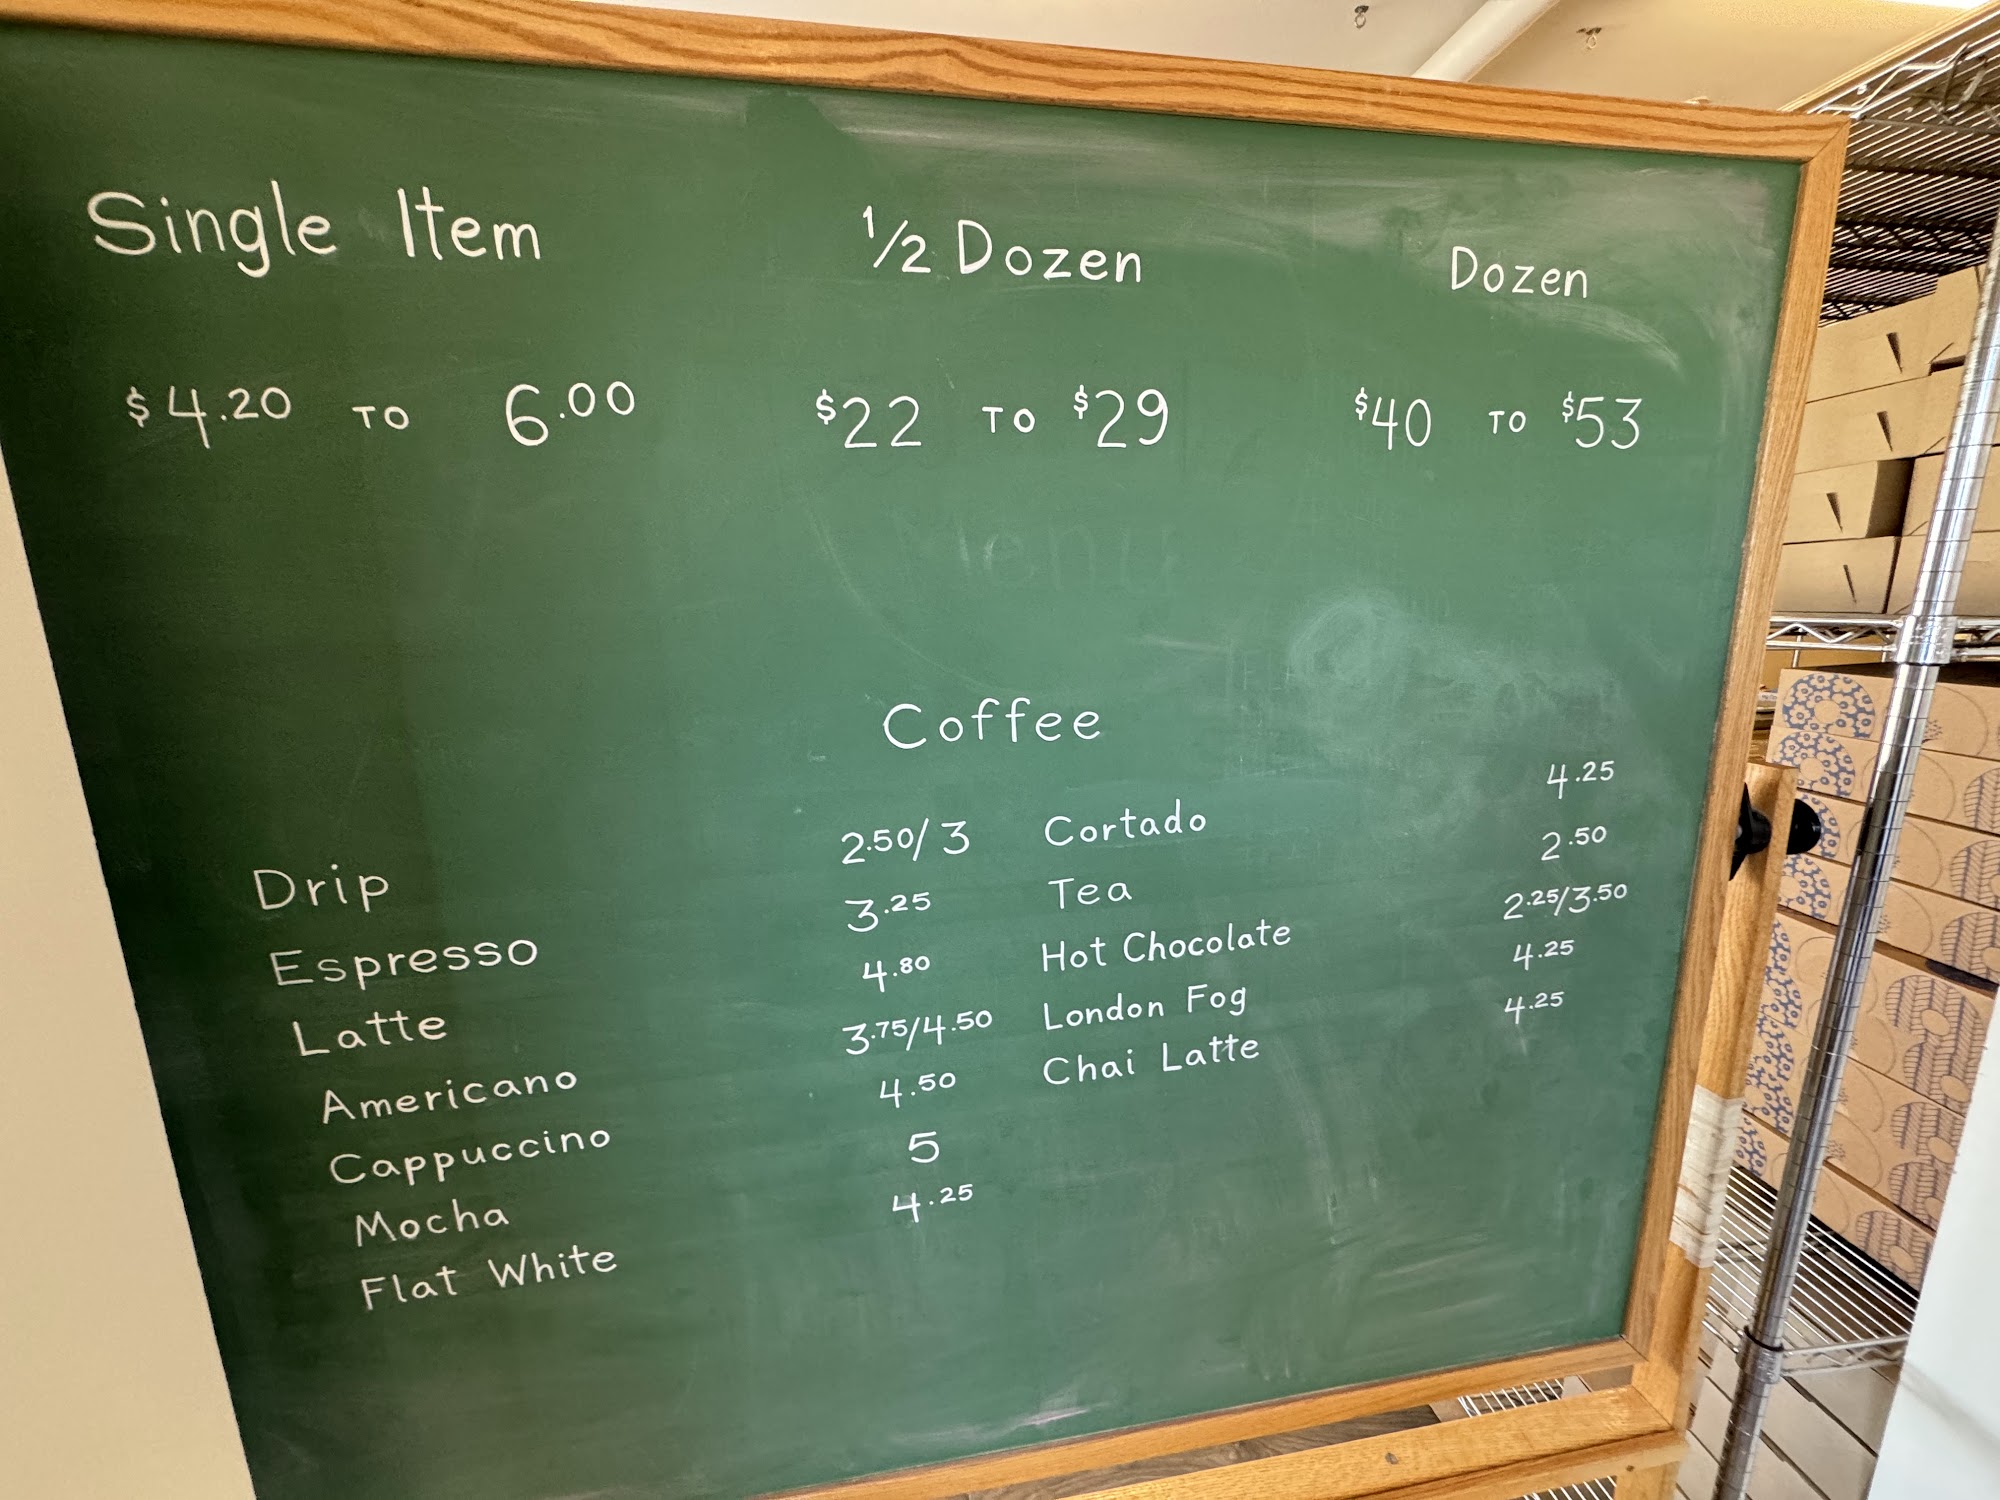 Single Item ½ Dozen Dozen
$4.20 TO 6.00 $22 TO $29 $40 TO $53
Menu
Coffee
Drip 2.50/3 Cortado 4.25
Espresso 3.25 Tea 2.50
Latte 4.80 Hot Chocolate 2.25/3.50
Americano 3.75/4.50 London Fog 4.25
Cappuccino 4.50 Chai Latte 4.25
Mocha 5
Flat White 4.25